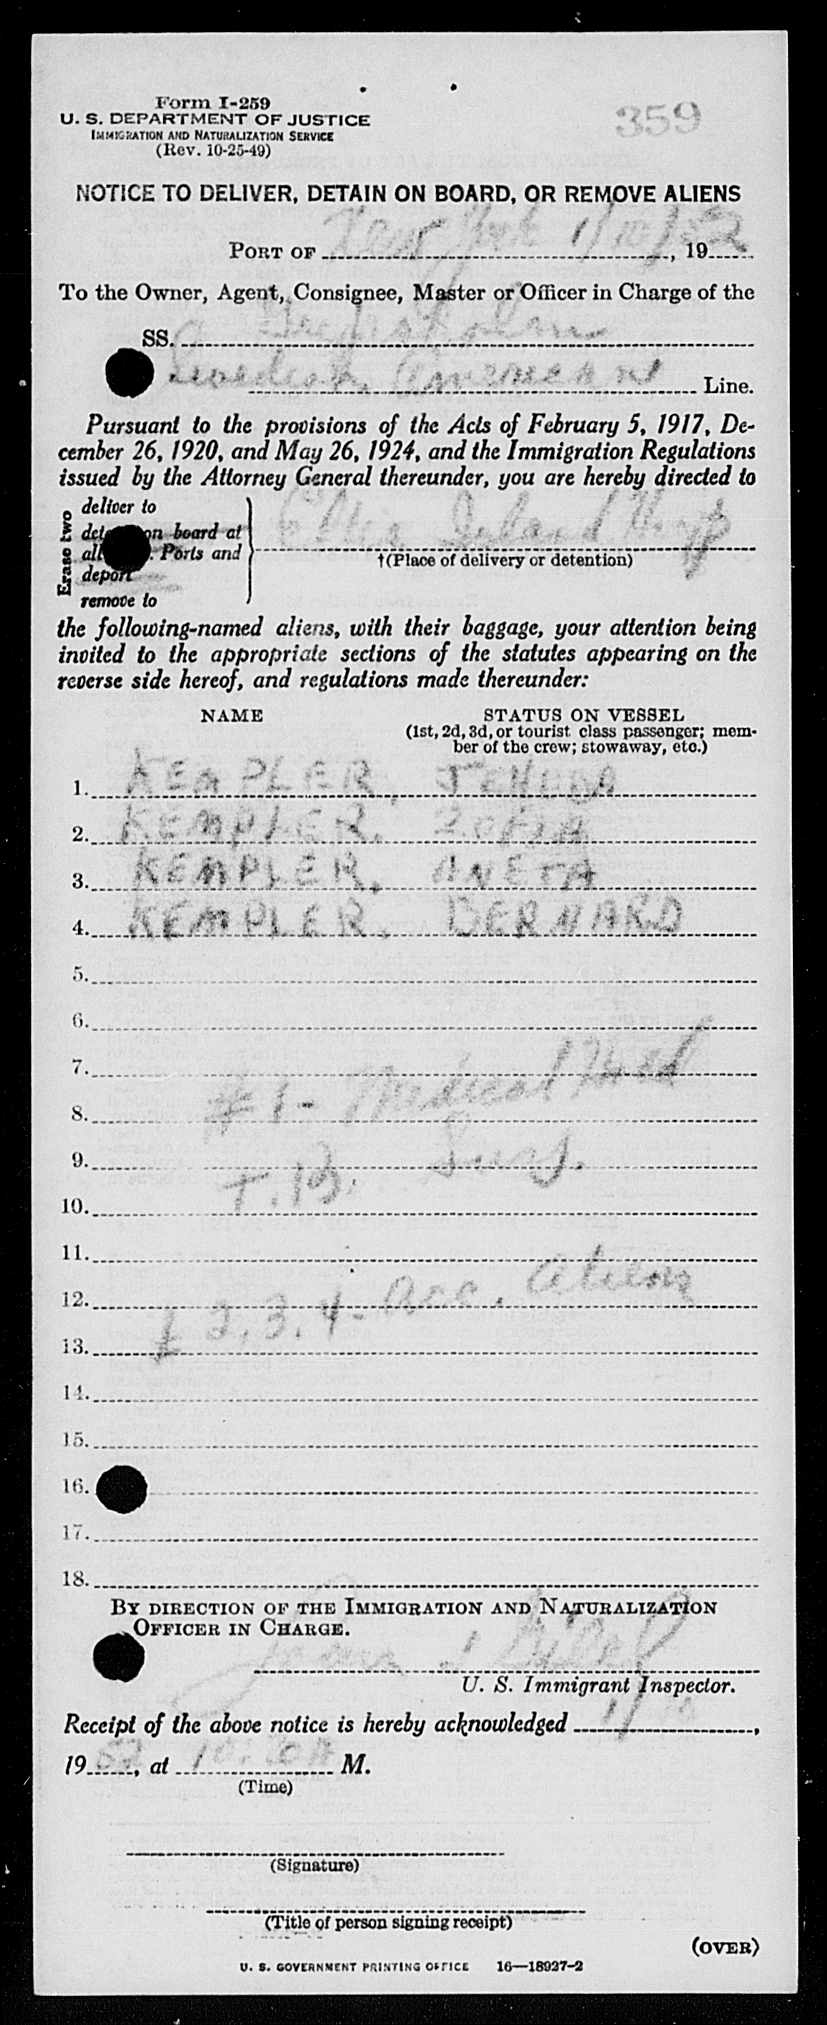 Form I-259
359
U. S. DEPARTMENT OF JUSTICE
IMMIGRATION AND NATURALIZATION SERVICE
(Rev. 10-25-49)
NOTICE TO DELIVER, DETAIN ON BOARD, OR REMOVE ALIENS
PORT OF New York 1/10/52, 19
To the Owner, Agent, Consignee, Master or Officer in Charge of the
SS. Gripsholm
Swedish American Line.
Pursuant to the provisions of the Acts of February 5, 1917, De-
cember 26, 1920, and May 26, 1924, and the Immigration Regulations
issued by the Attorney General thereunder, you are hereby directed to
Erase two
deliver to
on board at
Ports and
deport
remove to
Ellis Island Hosp
†(Place of delivery or detention)
the following-named aliens, with their baggage, your attention being
invited to the appropriate sections of the statutes appearing on the
reverse side hereof, and regulations made thereunder:
NAME STATUS ON VESSEL
(1st, 2d, 3d, or tourist class passenger; mem-
ber of the crew; stowaway, etc.)
1. KEMPLER, JEHUDA
2. KEMPLER, ZOFIA
3. KEMPLER, ANETA
4. KEMPLER, BERNARD
5.
6.
7.
8. #1- Medical Hold
9. Surg.
10. T.B.
11.
12. Acc. Aliens
13. 2, 3, 4-
14.
15.
16.
17.
18.
BY DIRECTION OF THE IMMIGRATION AND NATURALIZATION
OFFICER IN CHARGE.
U. S. Immigrant Inspector.
Receipt of the above notice is hereby acknowledged 1/10,
1952, at 10:30A M.
(Time)
(Signature)
(Title of person signing receipt)
(OVER)
U. S. GOVERNMENT PRINTING OFFICE 16—18927-2